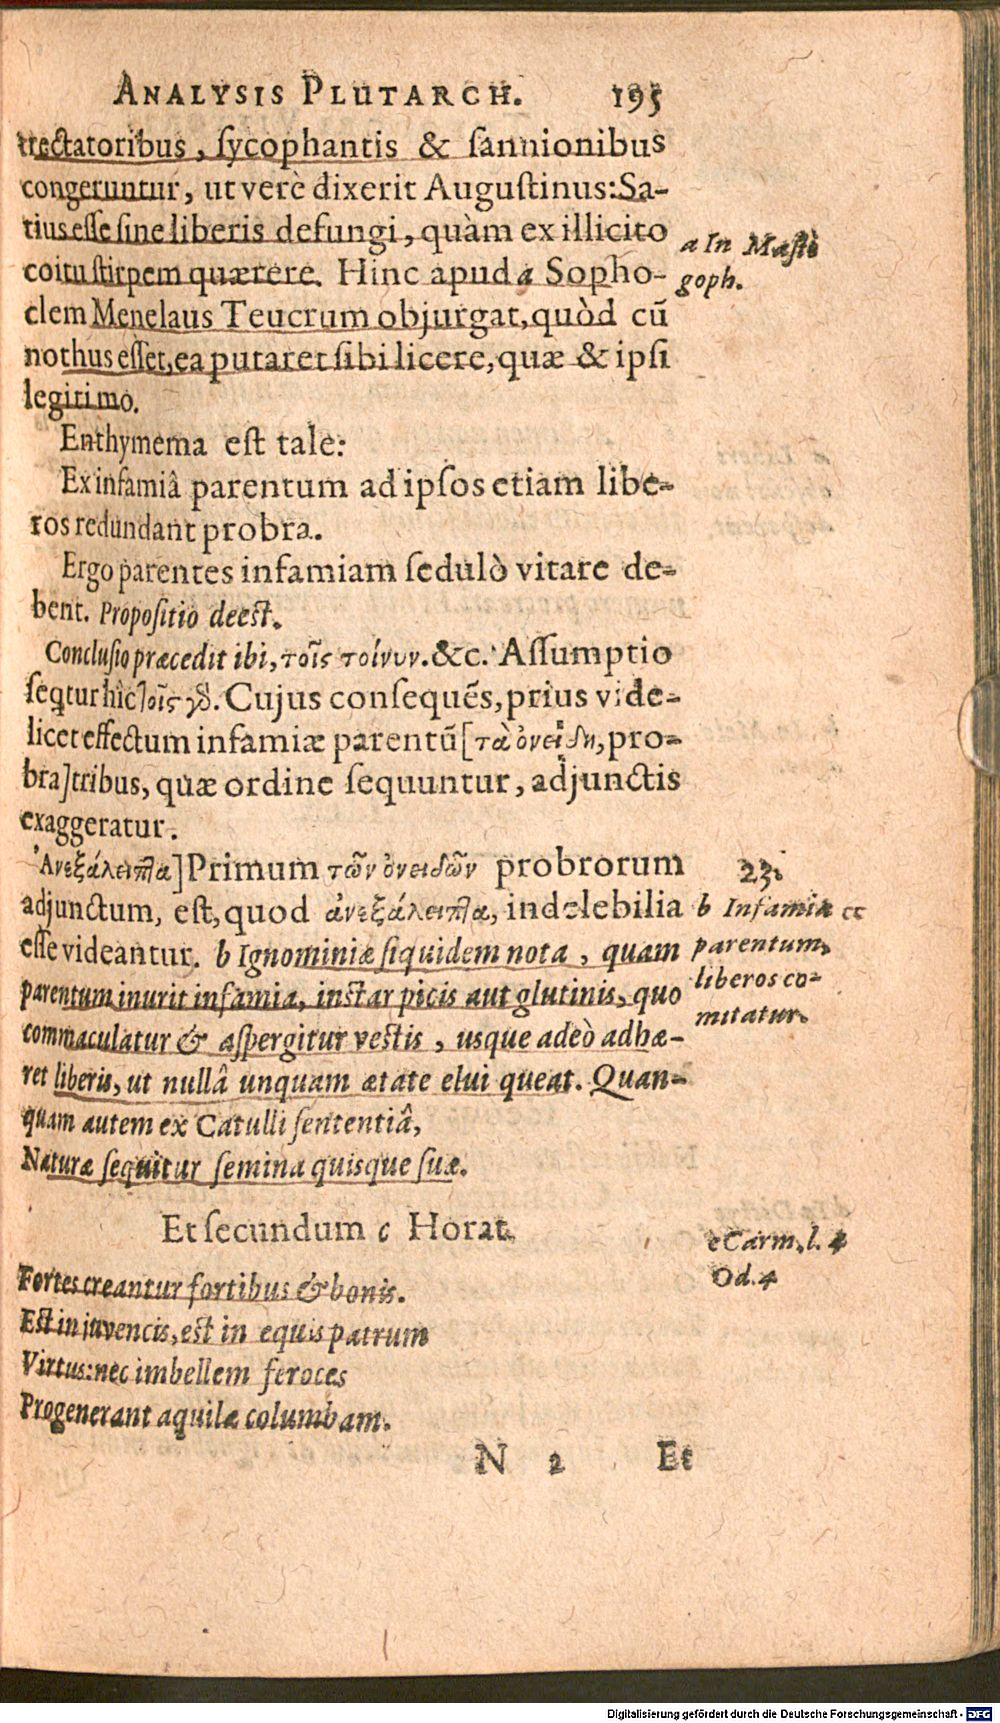 ANALYSIS PLUTARCH. 195
trectatoribus, ſycophantis & ſannionibus
congeruntur, ut verè dixerit Auguſtinus: Sa-
tius eſſe ſine liberis defungi, quàm ex illicito
coitu ſtirpem quærere. Hinc apud a Sopho-
clem Menelaus Teucrum objurgat, quòd cũ
nothus eſſet, ea putaret ſibi licere, quæ & ipſi
legitimo.
a In Maſti
goph.
Enthymema eſt tale:
Ex infamiâ parentum ad ipſos etiam libe-
ros redundant probra.
Ergo parentes infamiam ſedulò vitare de-
bent. Propoſitio deeſt.
Concluſio præcedit ibi, τοῖς τοίνυν. &c. Aſſumptio
ſeqtur hîc] οῖς γδ. Cujus conſequẽs, prius vide-
licet effectum infamiæ parentũ [τὰ ὀνείδη, pro-
bra] tribus, quæ ordine ſequuntur, adjunctis
exaggeratur.
Ἀνεξάλειπτα] Primum τῶν ὀνειδῶν probrorum
adjunctum, eſt, quod ἀνεξάλειπτα, indelebilia
eſſe videantur. b Ignominiæ ſiquidem nota, quam
parentum inurit infamia, inſtar picis aut glutinis, quo
commaculatur & aſpergitur veſtis, usque adeò adhæ-
ret liberis, ut nullâ unquam ætate elui queat. Quan-
quam autem ex Catulli ſententiâ,
23.
b Infamia
parentum
liberos co-
mitatur.
Naturæ ſequitur ſemina quisque ſuæ.
Et ſecundum c Horat.
c Carm. l. 4
Od. 4
Fortes creantur fortibus & bonis.
Eſt in juvencis, eſt in equis patrum
Virtus: nec imbellem feroces
Progenerant aquilæ columbam.
N 2 Et
Digitalisierung gefördert durch die Deutsche Forschungsgemeinschaft - DFG